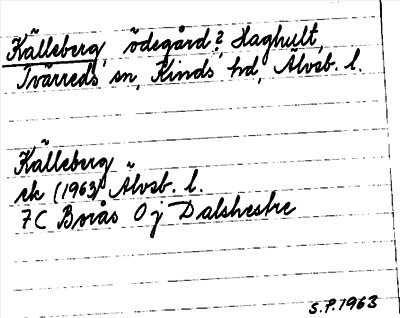 Källeberg, ödegård?, Haghult,
Tvärreds sn, Kinds hd, Älvsb. l.
Källeberg
ek (1963) Älvsb. l.
7C Borås 0j Dalshestre
S.P. 1963